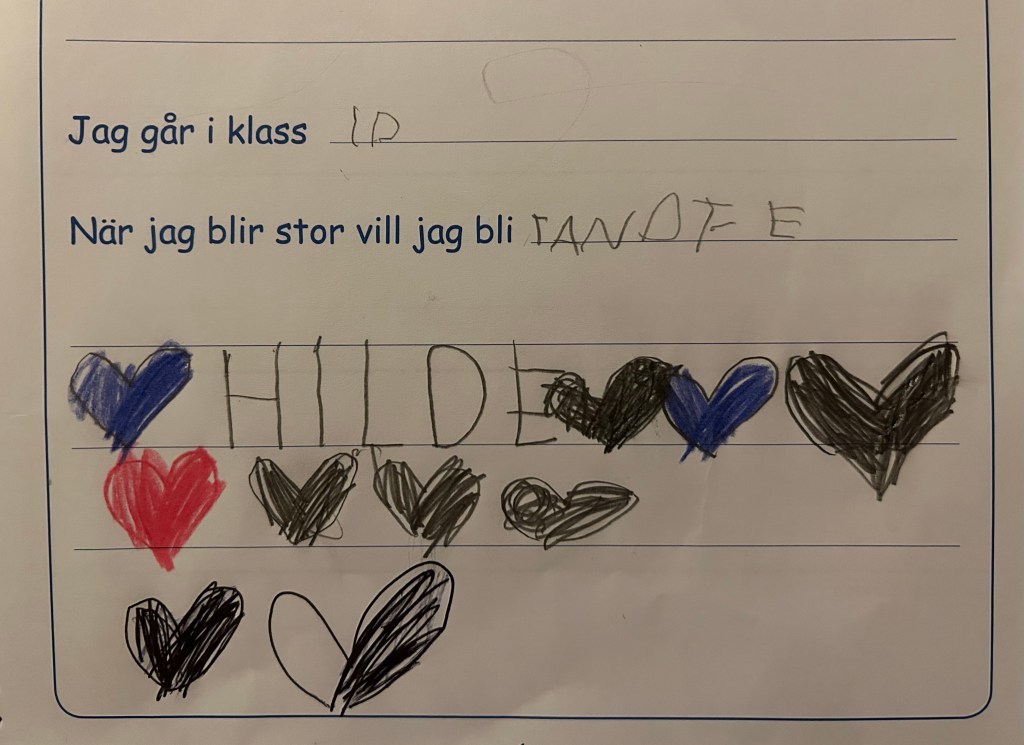 Jag går i klass 1D
När jag blir stor vill jag bli TANDFE
HILDE